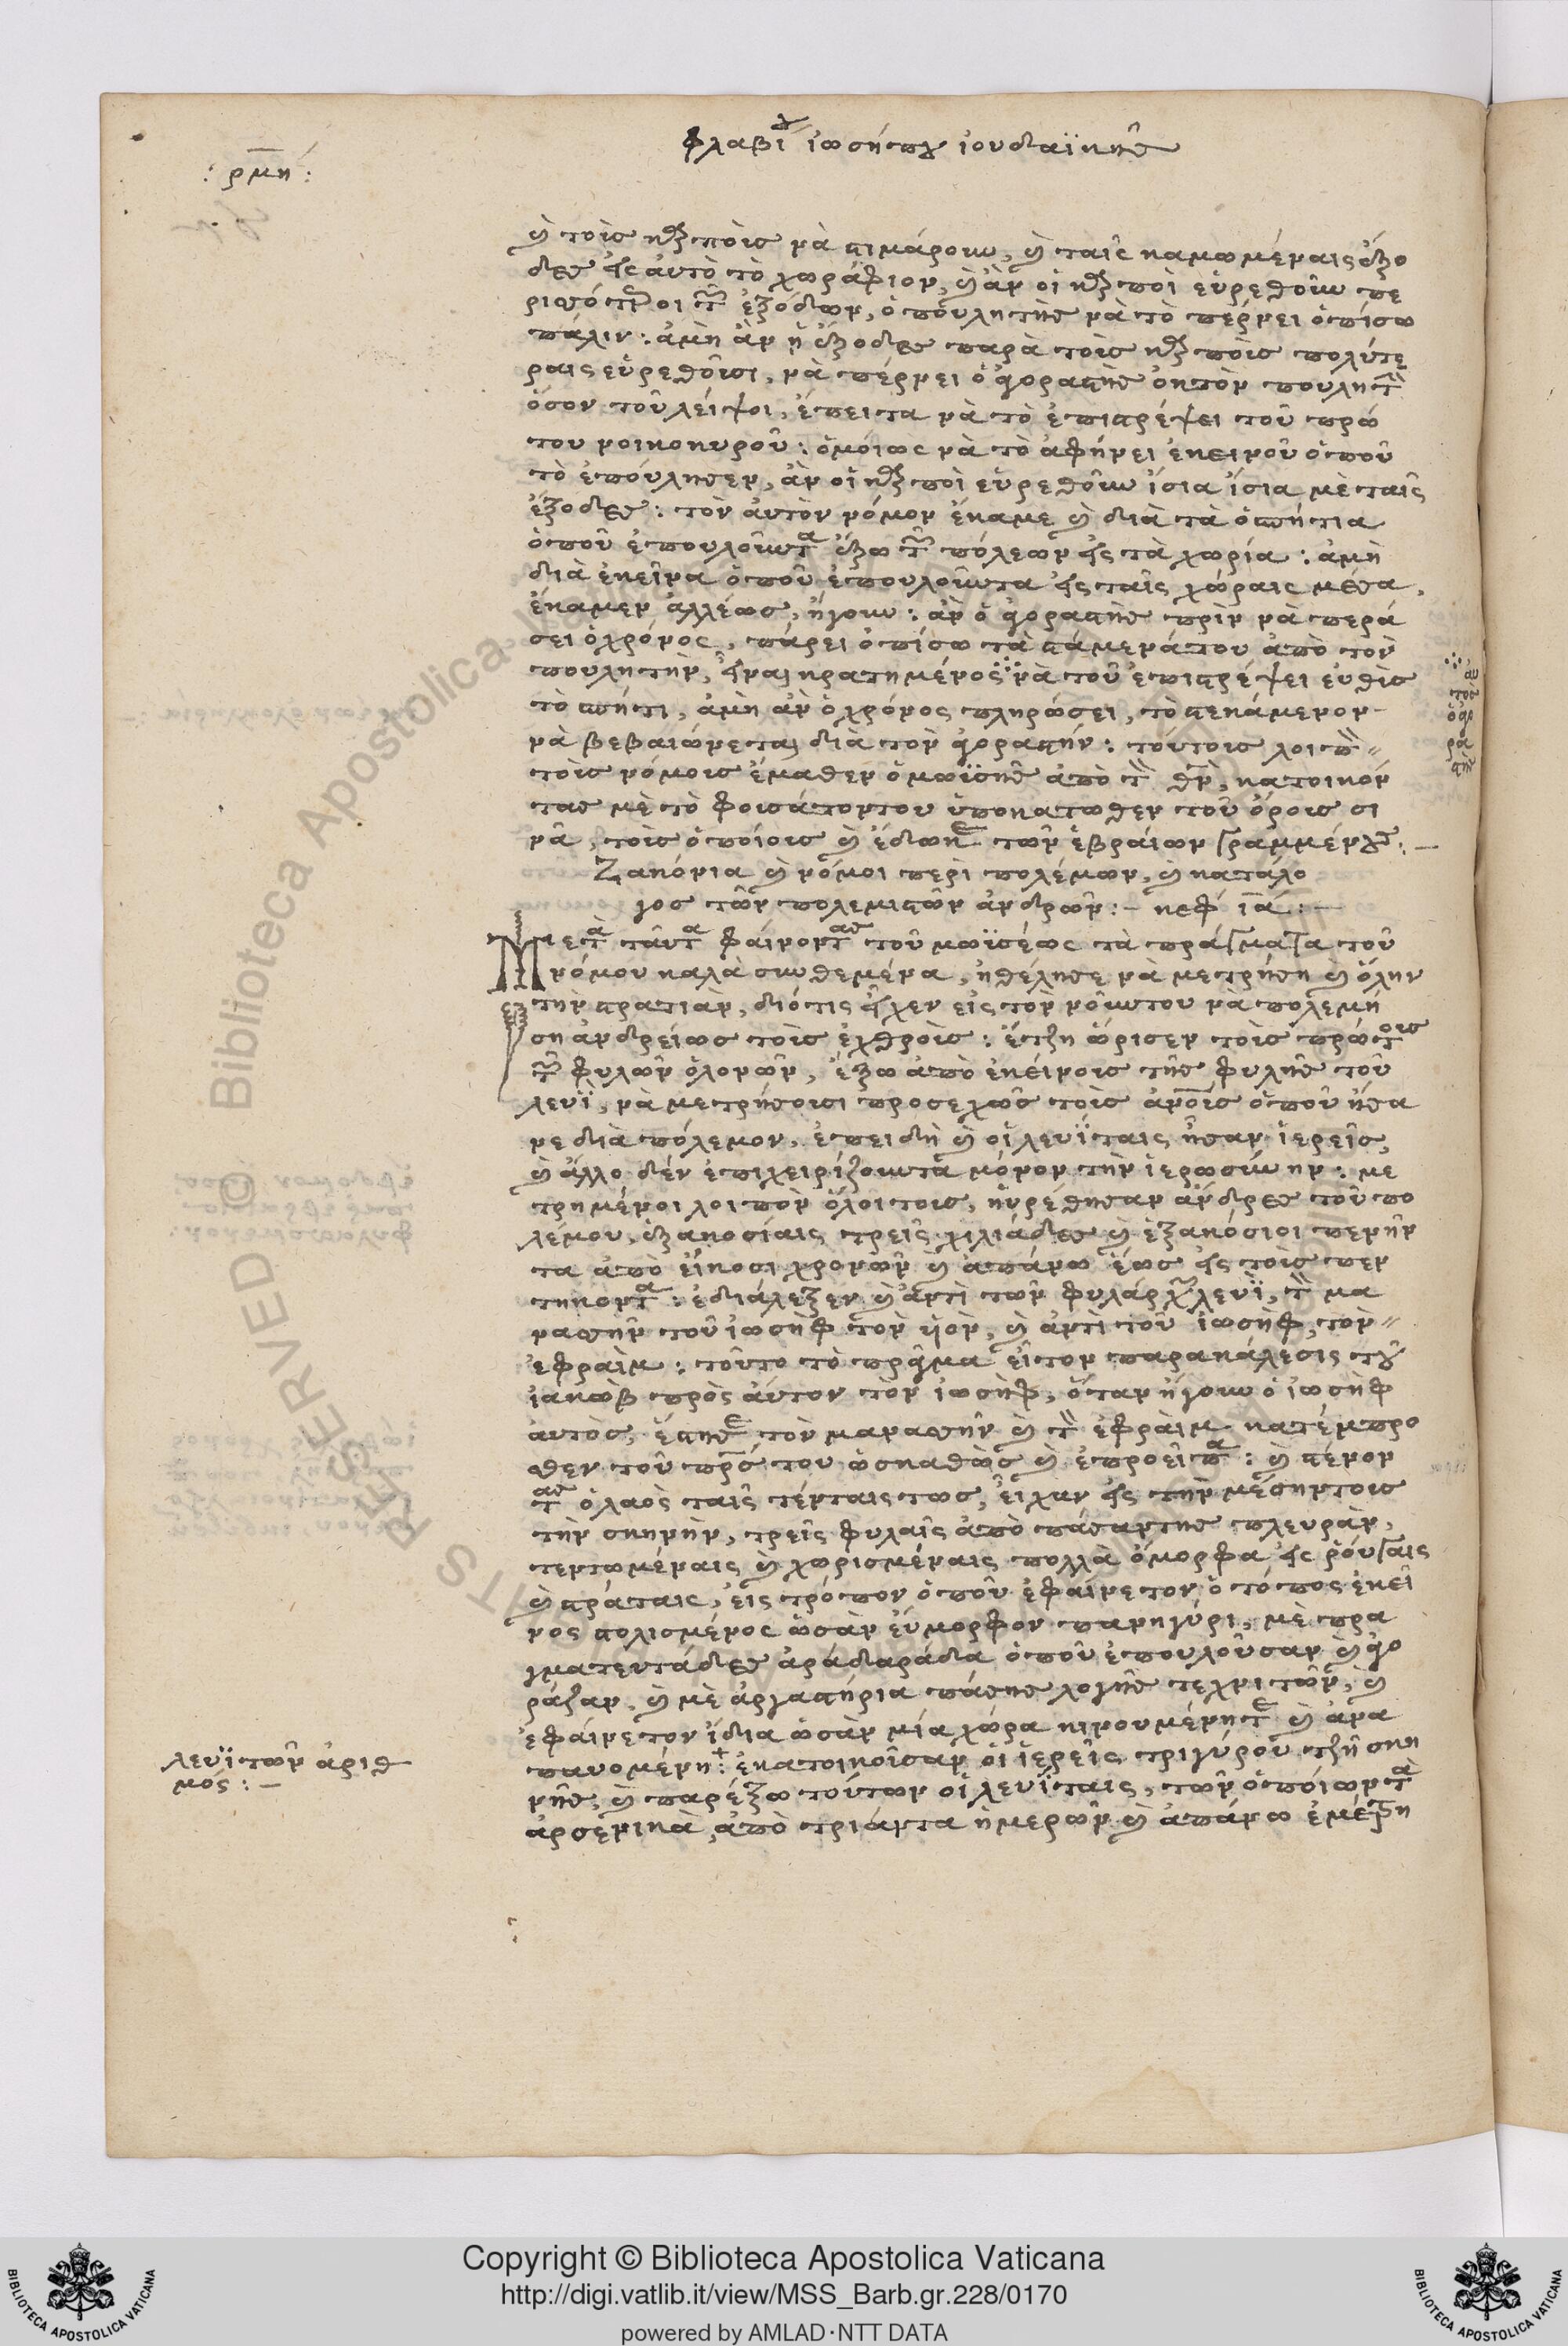 φλαβίου ἰωσήπου ἰουδαϊκῆς
: ρμη :
καὶ τοὶς καρποὶς νὰ τιμάρουν, καὶ ταῖς καμωμέναις ἔξο
δες εἰς ἀυτὸ τὸ χωράφιον, καὶ ἂν οἱ καρποὶ εὑρεθοῦν πε
ρισότεροι τῶν ἐξόδων, ὁ πουλητὴς νὰ τὸ πέρνει ὀπίσω
πάλιν: ἀμὴ ἂν ἡ ἔξοδες παρὰ τοὶς καρποὶς πολύτε
ραις εὑρεθοῦσι, νὰ πέρνει ὁ ἀγοραστὴς ἐκ τὸν πουλητὴν
ὅσον τοῦ λείψει, ἔπειτα νὰ τὸ ἐπιστρέψει τοῦ πρώ
του νοικοκυροῦ: ὁμόιως νὰ τὸ ἀφήνει ἐκεινοῦ ὁποῦ
τὸ ἐπούλησεν, ἂν οἱ καρποὶ εὑρεθοῦν ἴσια ἴσια μὲ ταῖς
ἔξοδες: τὸν ἀυτὸν νόμον ἔκαμε καὶ διὰ τὰ ὁσπήτια
ὁποῦ ἐπουλοῦντα ἔξω τῶν πόλεων εἰς τὰ χωρία: ἀμὴ
διὰ ἐκεῖνα ὁποῦ ἐπουλοῦντα εἰς ταῖς χώραις μεσα,
ἔκαμεν ἀλλέως, ἤγουν: ἂν ὁ ἀγοραστὴς πρὶν νὰ περά
σει ὁ χρόνος, πάρει ὀπίσω τὰ στάμενά του ἀπὸ τὸν
πουλητὴν, εἶναι κρατημένος νὰ τοῦ ἐπιστρέψει ἐυθὶς
τὸ σπήτι, ἀμὴ ἂν ὁ χρόνος πληρώσει, τὸ στεκάμενον
νὰ βεβαιώνεται διὰ τὸν ἀγοραστήν: τούτοις λοιπὸν
τοὶς νόμοις ἔμαθεν ὁ μωϊσῆς ἀπὸ τὸν θεὸν, κατοικόν
τας μὲ τὸ φουσάτον του ὑποκατωθεν τοῦ ὄροις σι
νᾶ, τοὶς ὁποίοις καὶ ἔδωκε τῶν ἑβραίων γραμμένους:—
Ζακόνια καὶ νόμοι περὶ πολέμων, καὶ κατάλο
γος τῶν πολεμιστῶν ἀνδρῶν:— κεφ ια:—
Μετὰ ταῦτα φαίνοντας τοῦ μωϊσέως τὰ πράγματα τοῦ
νόμου καλὰ συνθεμένα, ἠθέλησε νὰ μετρήση καὶ ὅλην
τὴν στρατιὰν, διότις εἶχεν εἰς τὸν νοῦν του νὰ πολεμή
ση ἀνδρείως τοὶς ἐχθροὶς: ἔτζη ὥρισεν τοὶς πρώτοις
τῶν φυλῶν ὁλονῶν, ἔξω ἀπὸ ἐκείνοις τῆς φυλῆς τοῦ
λευῒ, νὰ μετρήσοισι προσεχῶς τοὶς ἀνους ὁποῦ ἦσα
νε διὰ πόλεμον, ἐπειδὴ καὶ οἱ λευΐταις ἦσαν ἱερεῖς,
καὶ ἄλλο δέν ἐπιχειρίζουντα μόνον τὴν ἱερωσύνην: με
τρημένοι λοιπὸν ὅλοι τοις, ηὑρέθησαν ἄνδρες τοῦ πο
λέμου, ἑξακοσίαις τρεῖς χιλιάδες καὶ ἑξακόσιοι πενήν
τα ἀπὸ εἴκοσι χρονῶν καὶ ἀπάνω ἕως εἰς τοὶς πεν
τηκοντα: ἐδιάλεξεν καὶ ἀντὶ τῶν φυλάρχων λευῒ, τὸν μα
νασῆν τοῦ ἰωσὴφ τὸν ὑιὸν, καὶ ἀντὶ τοῦ ἰωσὴφ, τὸν
ἐφραΐμ: τοῦτο τὸ πρᾶγμα εἶτον παρακάλεσις τοῦ
ἰακὼβ πρὸς ἀύτον τὸν ἰωσὴφ, ὅταν ἤγουν ὁ ἰωσὴφ
ἀυτὸς, ἔστησε τὸν μανασῆν καὶ τὸν ἐφράιμ κατέμπρο
σθεν τοῦ πρσ του ὡσκαθὼς καὶ ἐπροεῖπα: καὶ στένον
τας ὁ λαὸς ταῖς τένταις τως, εἶχαν εἰς τὴν μέσην τοις
τὴν σκηνὴν, τρεῖς φυλαῖς ἀπὸ πάσαν της πλευρὰν,
τεντωμέναις καὶ χωρισμέναις πολλὰ ὄμορφα εἰς ῥούγαις
καὶ στράταις, εἰς τρόπον ὁποῦ ἐφαίνετον ὁ τόπος ἐκεῖ
νος στολισμένος ὡσὰν εὔμορφον πανηγύρι, μὲ πρα
γματευτάδες ἀράδαράδα ὁποῦ ἐπουλοῦσαν καὶ ἀγο
ράζαν, καὶ μὲ ἀργαστήρια πάσης λογῆς τεχνιτῶν, καὶ
ἐφαίνετον ἴδια ὡσὰν μία χώρα κινουμένη τε καὶ ἀνα
παυομένη: ἐκατοικοῦσαν οἱ ἱερεῖς τριγύρου τζῆ σκη
νῆς, καὶ παρέξω τούτων οἱ λευΐταις, τῶν ὁποίων τὰ
ἀρσενικὰ, ἀπὸ τριάντα ἡμερῶν καὶ ἀπάνω ἐμετρη
λευϊτῶν ἀριθ
μός:—